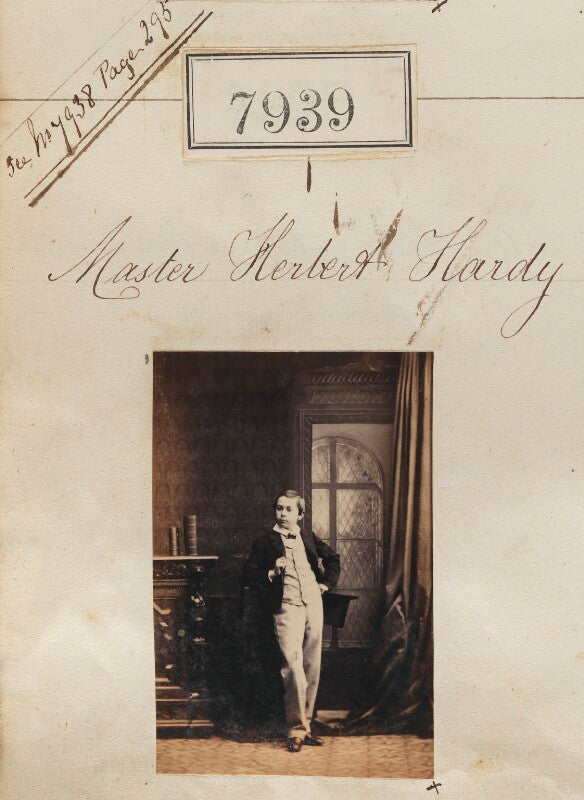 See No 7938 Page 295
7939
Master Herbert Hardy